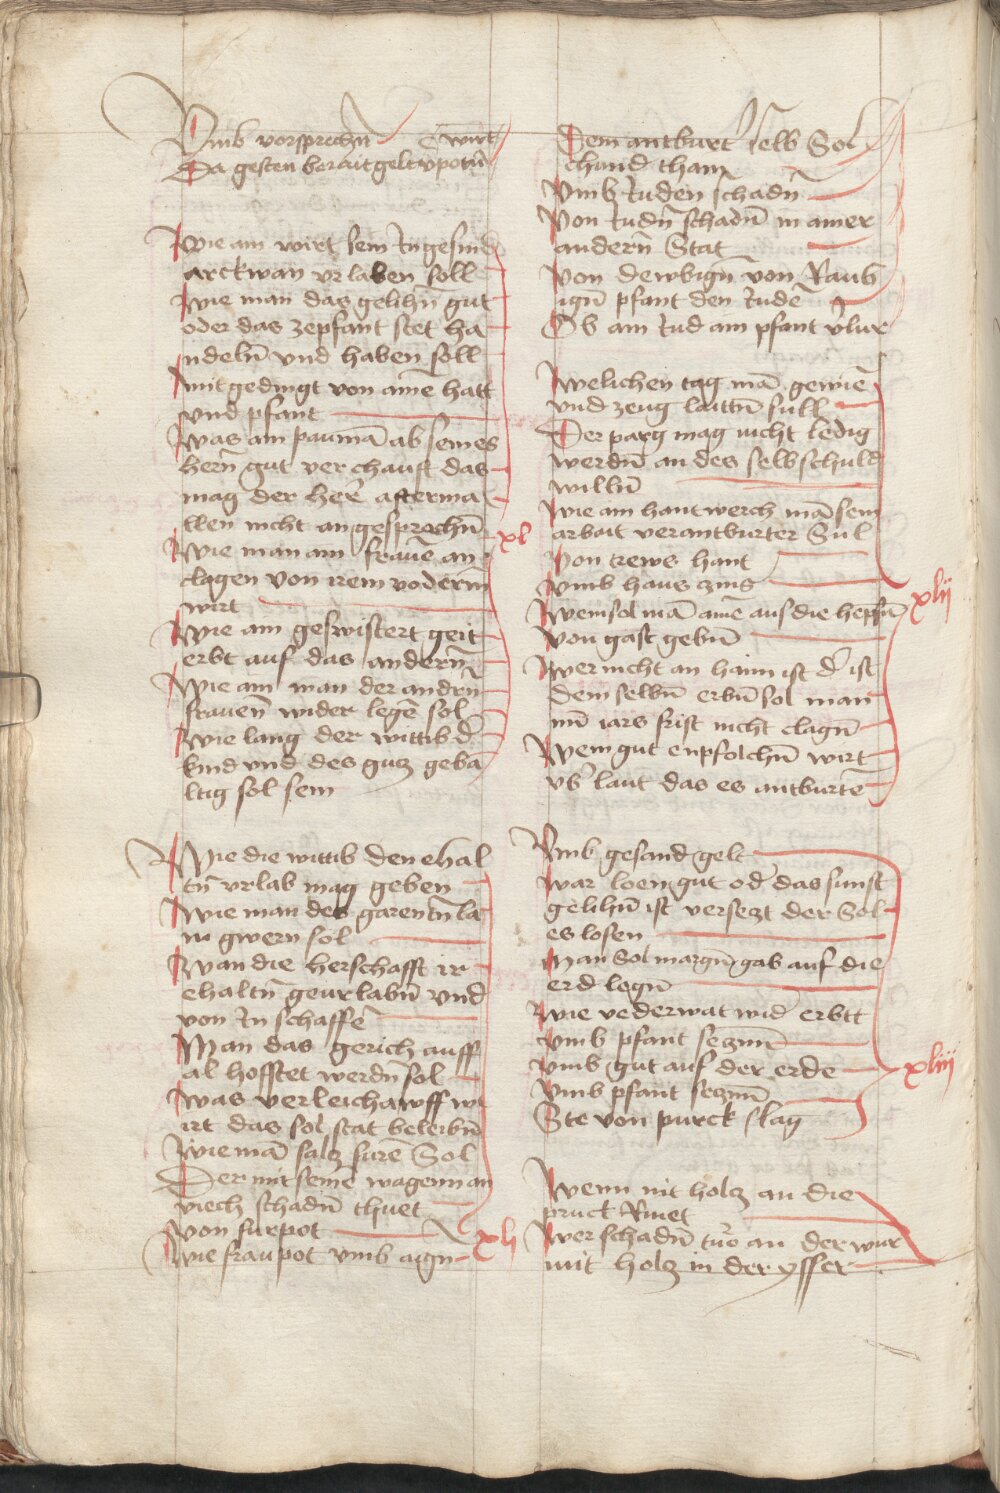 Vmb vorsprechn̄ wirt
Da gesten berait gelt v̄potn̄
Wie ain wirt sein Ingesind
arckwan vrlaben soll
Wie man das gelihn̄ gut
oder das ze pfant stet ha
ndeln̄ vnd haben soll
mit gedingt von ainē hatt
vnd pfant
Was ain paumā ab seines
hern̄ gut verchauft das
mag der herr afterma
llen nicht an gesprochn̄
xl
Wie man ain frauē an
clagen von irem vodern̄
wirt
Wie ain geswistert geit
erbt auf das andern̄
Wie ain man der andrn̄
frauen̄ wider legē sol
Wie lang der wittib d̄
kind vnd des gutz gebā
ltig sol sein
Wie die wittib den ehal
tn̄ vrlab mag geben
Wie man des garentn̄ la
in gwern sol
Wan die herschafft ir
ehaltn̄ geurlabn̄ vnd
von In schaffē
Man das gerich auff
al hofftet werdn̄ sol
Was verleichawff w
irt das sol stat beleibn̄
Wie mā saltz furē Sol
Der mit seinē wagen̄ an
viech schadn̄ thuet
Von furpot
xli
Wie fraupot vmb aign
Dem antburt selb Sol
chand tham
Vmb Juden schadn̄
Von Judn̄ schadn̄ in ainer
andern̄ Stat
Von dewbign̄ von Raub
ign̄ pfant den Judē
Ob ain Jud ain pfant v̄lur
Welichen tag mā gewiē
vnd zeug laittn̄ sull
Der parg mag nicht ledig
werdn̄ an des selbschuld
willn̄
Wie ain hantwerch mā sein
arbait verantburter Sul
Von trews hant
Vmb haus zins
xlii
Wem sol mā ainē aus die hepfn̄
Von gast gebn̄
Wer nicht an haim ist d̄ ist
dem selbn̄ erbn̄ sol man
inn̄ iars frist nicht clagn̄
Wem gut enpfolchn̄ wirt
vb̄ laut das es antburtē
Vmb gesand gelt
War loen gut od̄ das sunst
gelihn̄ ist versetzt der Sol
es losen
Man Sol margn̄ gab auf die
erd legn̄
Wie vederwat wid̄ erbtt
Vmb pfant setzn̄
Vmb gut auf der erde
xliii
Vmb pfant setzn̄
Ste von purck slag
Wenn mit holtz an die
pruck Rinet
Wer schadn̄ tuo an der wur
mit holtz in der ysser